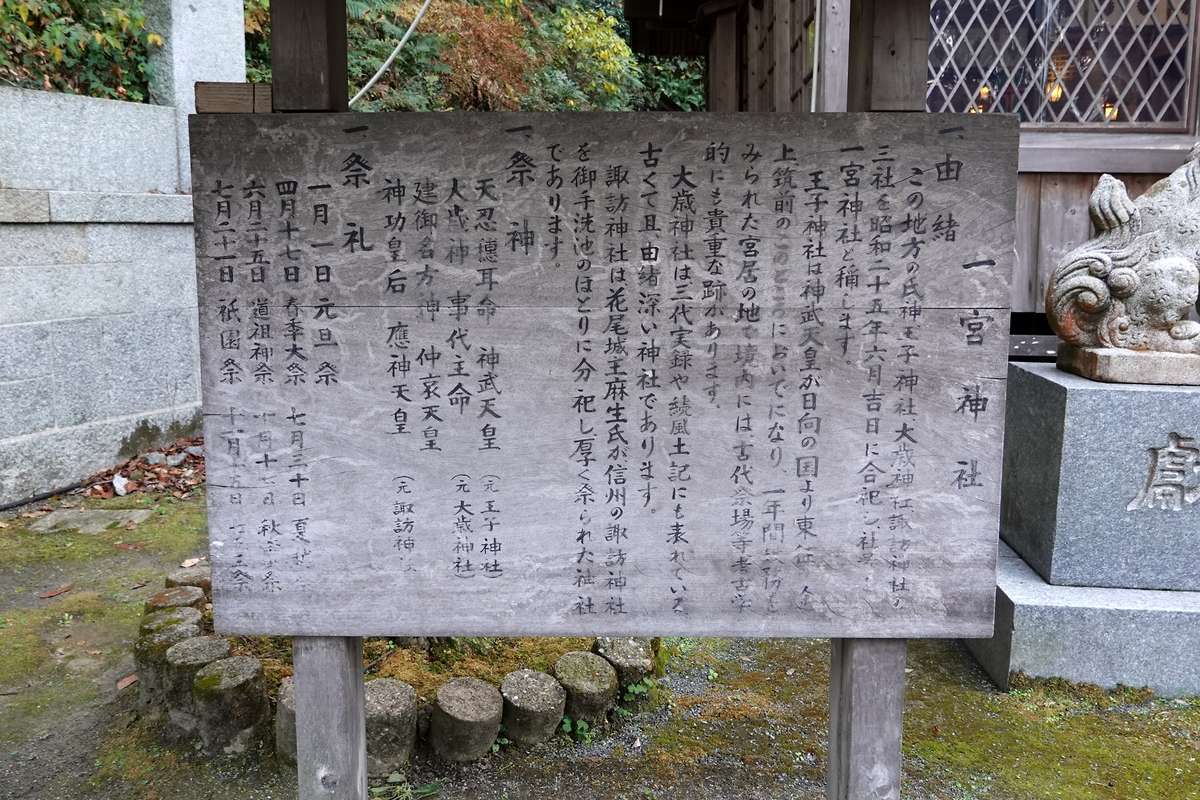 一宮神社
一由緒
この地方の氏神王子神社大歳神社諏訪神社の
三社を昭和二十五年六月吉日に合祀し社号
一宮神社と稱します。
王子神社は神武天皇が日向の国より東征
上筑前のこのところにおいでになり、一年間
みられた宮居の地で境内には、古代祭場等考古学
的にも貴重な跡があります。
大歳神社は三代実録や続風土記にも表れている
古くて且由緒深い神社であります。
諏訪神社は花尾城主麻生氏が信州の諏訪神社
を御手洗池のほとりに分祀し厚く祭られた社
であります。
一祭神
天忍穂耳命 神武天皇 (元王子神社)
大歳神 事代主命 (元大歳神社)
建御名方神 仲哀天皇
神功皇后 應神天皇 (元諏訪神社
一祭礼
一月一日元旦祭
四月十七日春季大祭 七月三十日夏
六月二十五日道祖神祭 十月十七日秋季
七月二十一日祇園祭 十一月十五日七五三祭